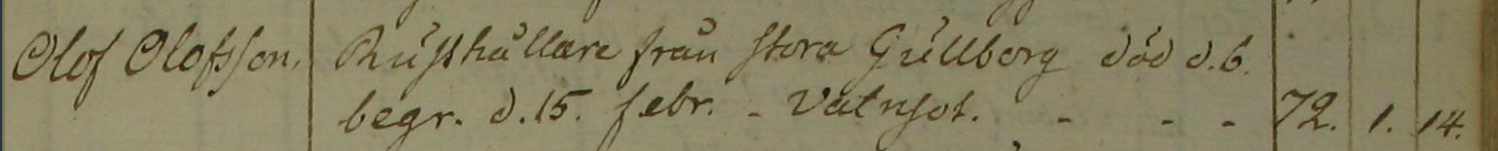 Olof Olofsson. Rusthållare från Stora Gullborg död d. 6.
begr. d. 15. febr. - Vatnsot. - - - 72. 1. 14.